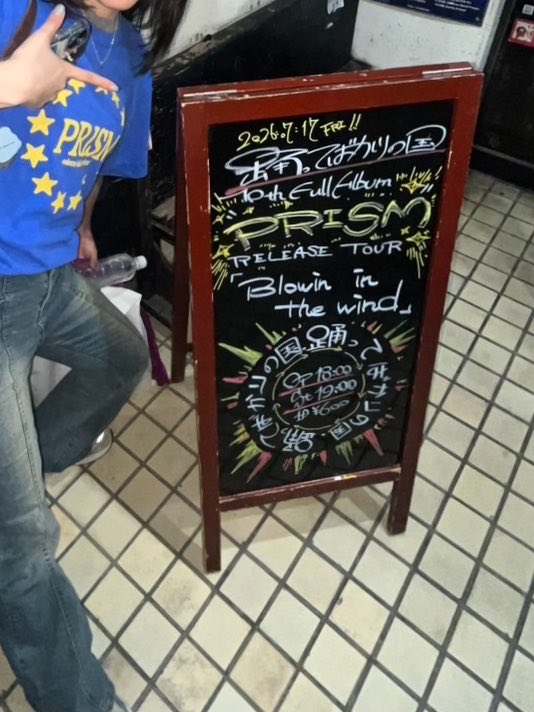 PRISM
2026.7.17 FRI!!
踊ってばかりの国
10th Full Album
PRISM
RELEASE TOUR
「Blowin in
the wind」
踊ってばかりの国
OP 18:00
St 19:00
1D ¥600